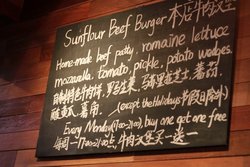 Sunflour Beef Burger 本店牛肉汉堡
Home-made beef patty, romaine lettuce
mozzarella, tomato, pickle, potato wedges.
自制特色牛肉饼, 罗马生菜, 马苏里拉芝士, 蕃茄,
酸黄瓜, 薯角. (except the Holidays 节假日除外)
Every Monday (17:00-21:00) buy one get one free
每周一 17:00-21:00点, 牛肉汉堡买一送一